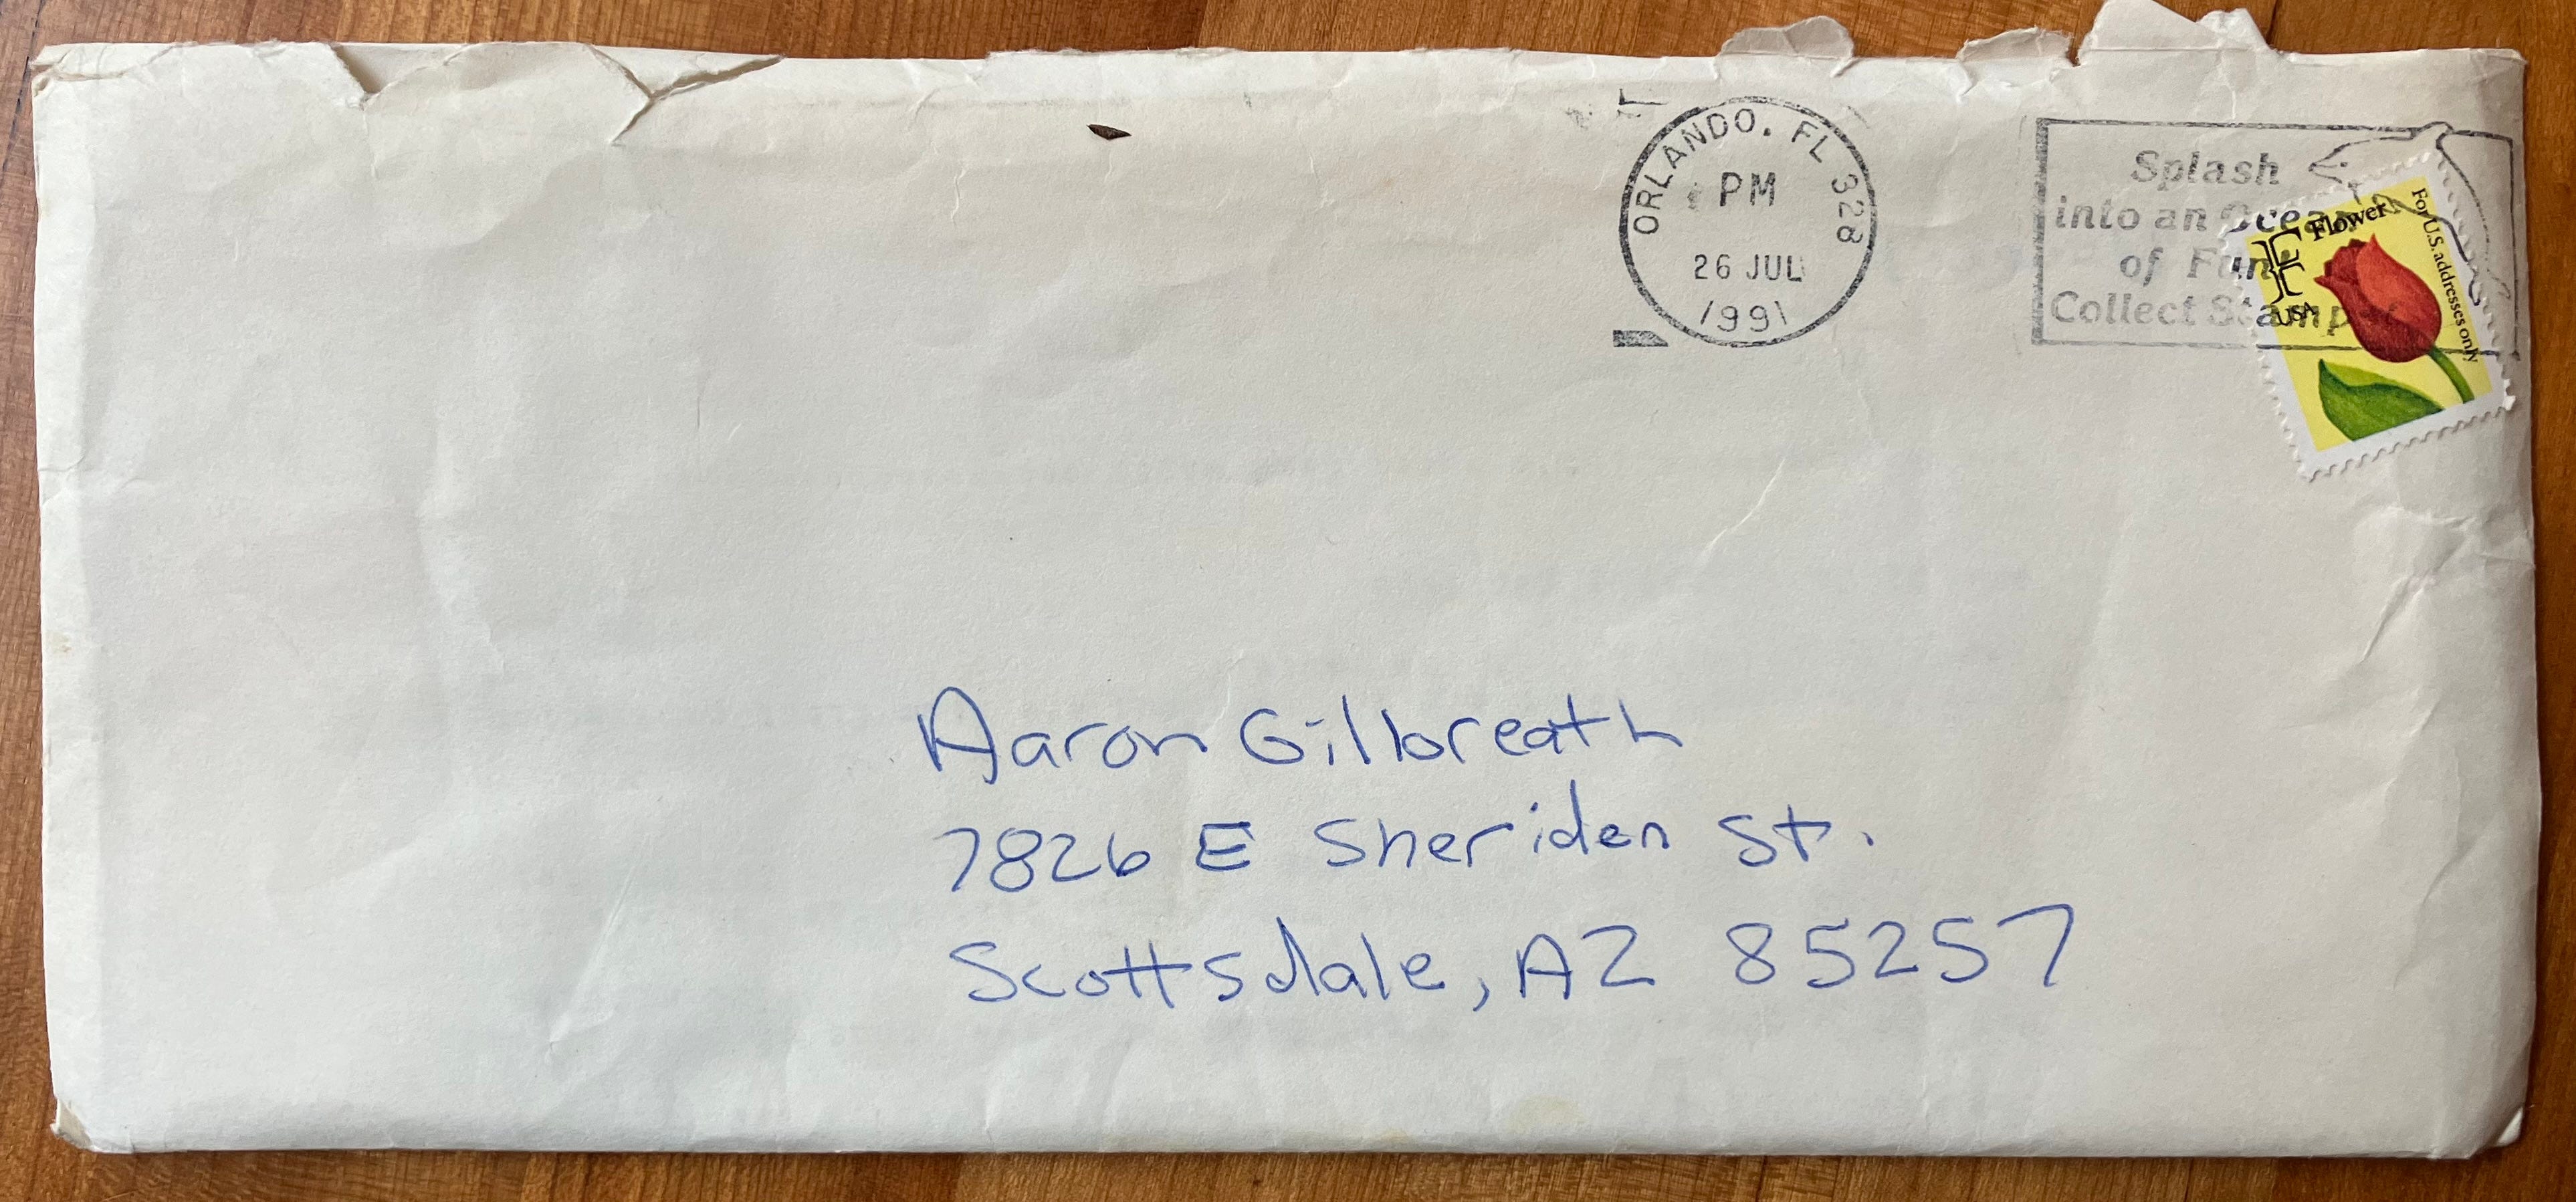 ORLANDO, FL 328
PM
26 JUL
1991
Splash
into an Ocean
of Fun
Collect Stamps
Flower
For U.S. addresses only
F
USA
Aaron Gilbreath
7826 E Sheriden St.
Scottsdale, AZ 85257